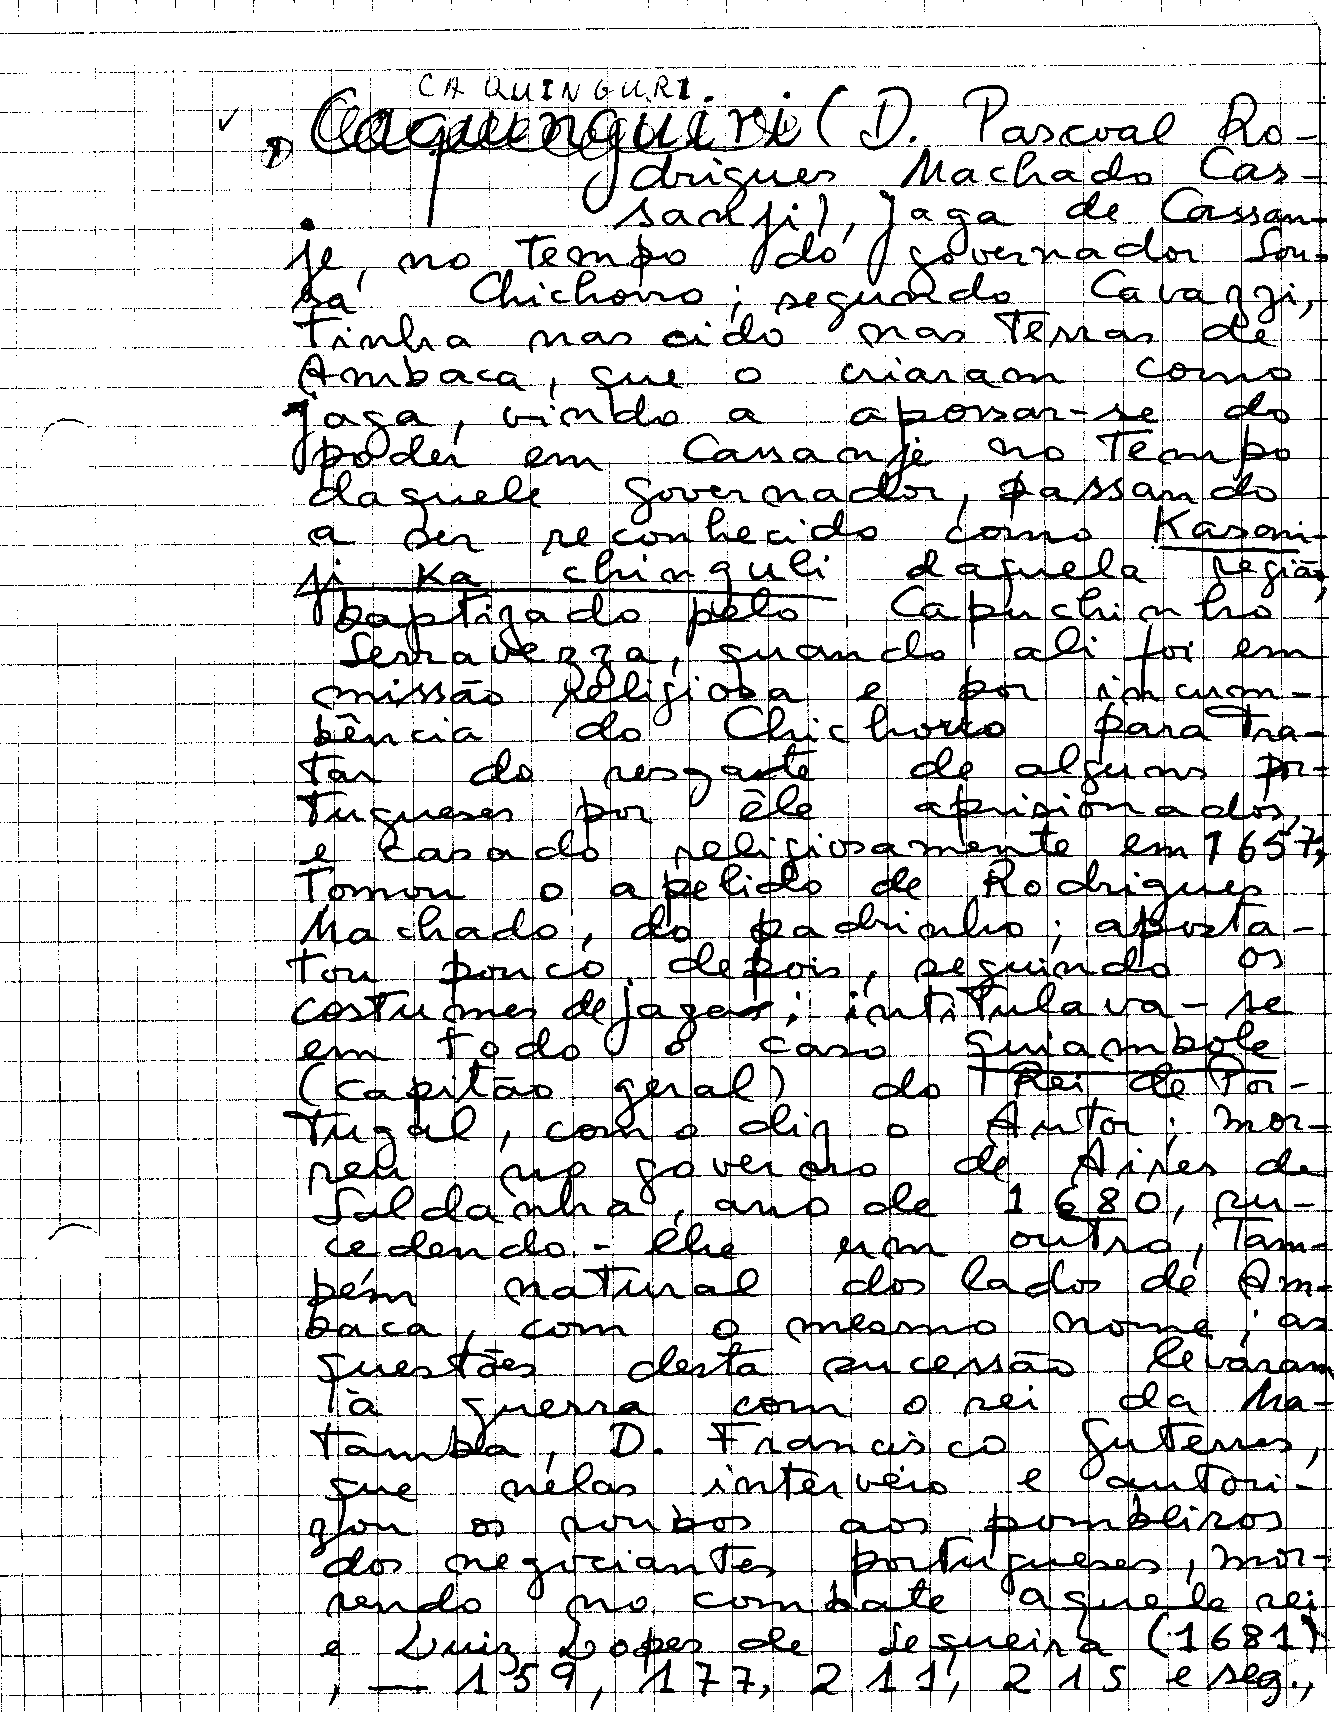 CAQUINGURI.
Caquinguiri (D. Pascoal Ro-
drigues Machado Cas-
sanji), jaga de Cassan-
je, no tempo do governador Sou-
sa Chichorro; segundo Cavazzi,
tinha nascido nas terras de
Ambaca, que o criaram como
jaga, vindo a apossar-se do
poder em Cassanje no tempo
daquele governador, passando
a ser reconhecido como Kasan-
ji Ka chinguli daquela região;
baptizado pelo Capuchinho
Serravezza, quando ali foi em
missão religiosa e por incum-
bência do Chichorro para tra-
tar do resgate de alguns por-
tugueses por êle aprisionados,
e casado religiosamente em 1657,
tomou o apelido de Rodrigues
Machado, do padrinho; aposta-
tou pouco depois, seguindo os
costumes de jagas; intitulava-se
em todo o caso quiambole
(capitão geral) do Rei de Por-
tugal, como diz o Autor; mor-
reu no governo de Aires de
Saldanha, ano de 1680, su-
cedendo-lhe um outro, tam-
bém natural dos lados de Am-
baca, com o mesmo nome; as
questões desta sucessão levaram
à guerra com o rei da Ma-
tamba, D. Francisco Guterres,
que nelas interveio e autori-
zou os roubos aos pombeiros
dos negociantes portugueses, mor-
rendo no combate aquele rei
e Luiz Lopes de Sequeira (1681)
, — 159, 177, 211, 215 e seg.,